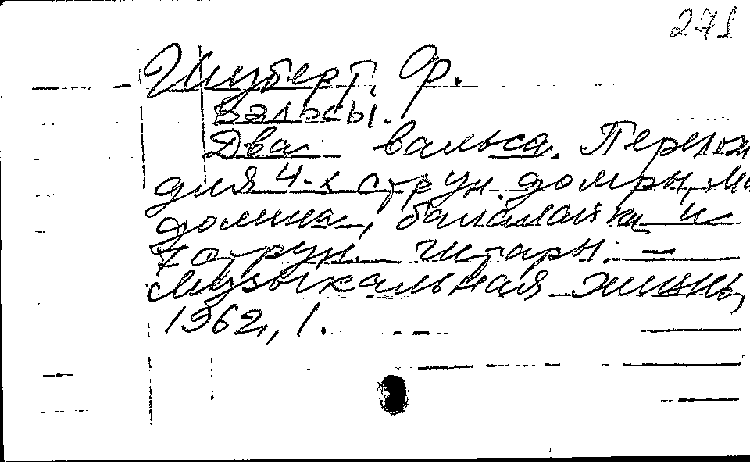 271
Шуберт, Ф.
Вальсы.
Два вальса. Перелож
для 4-х струн. домры, ман
долина, балалайка и
7 струн. гитары. —
Музыкальная жизнь,
1962, 1.